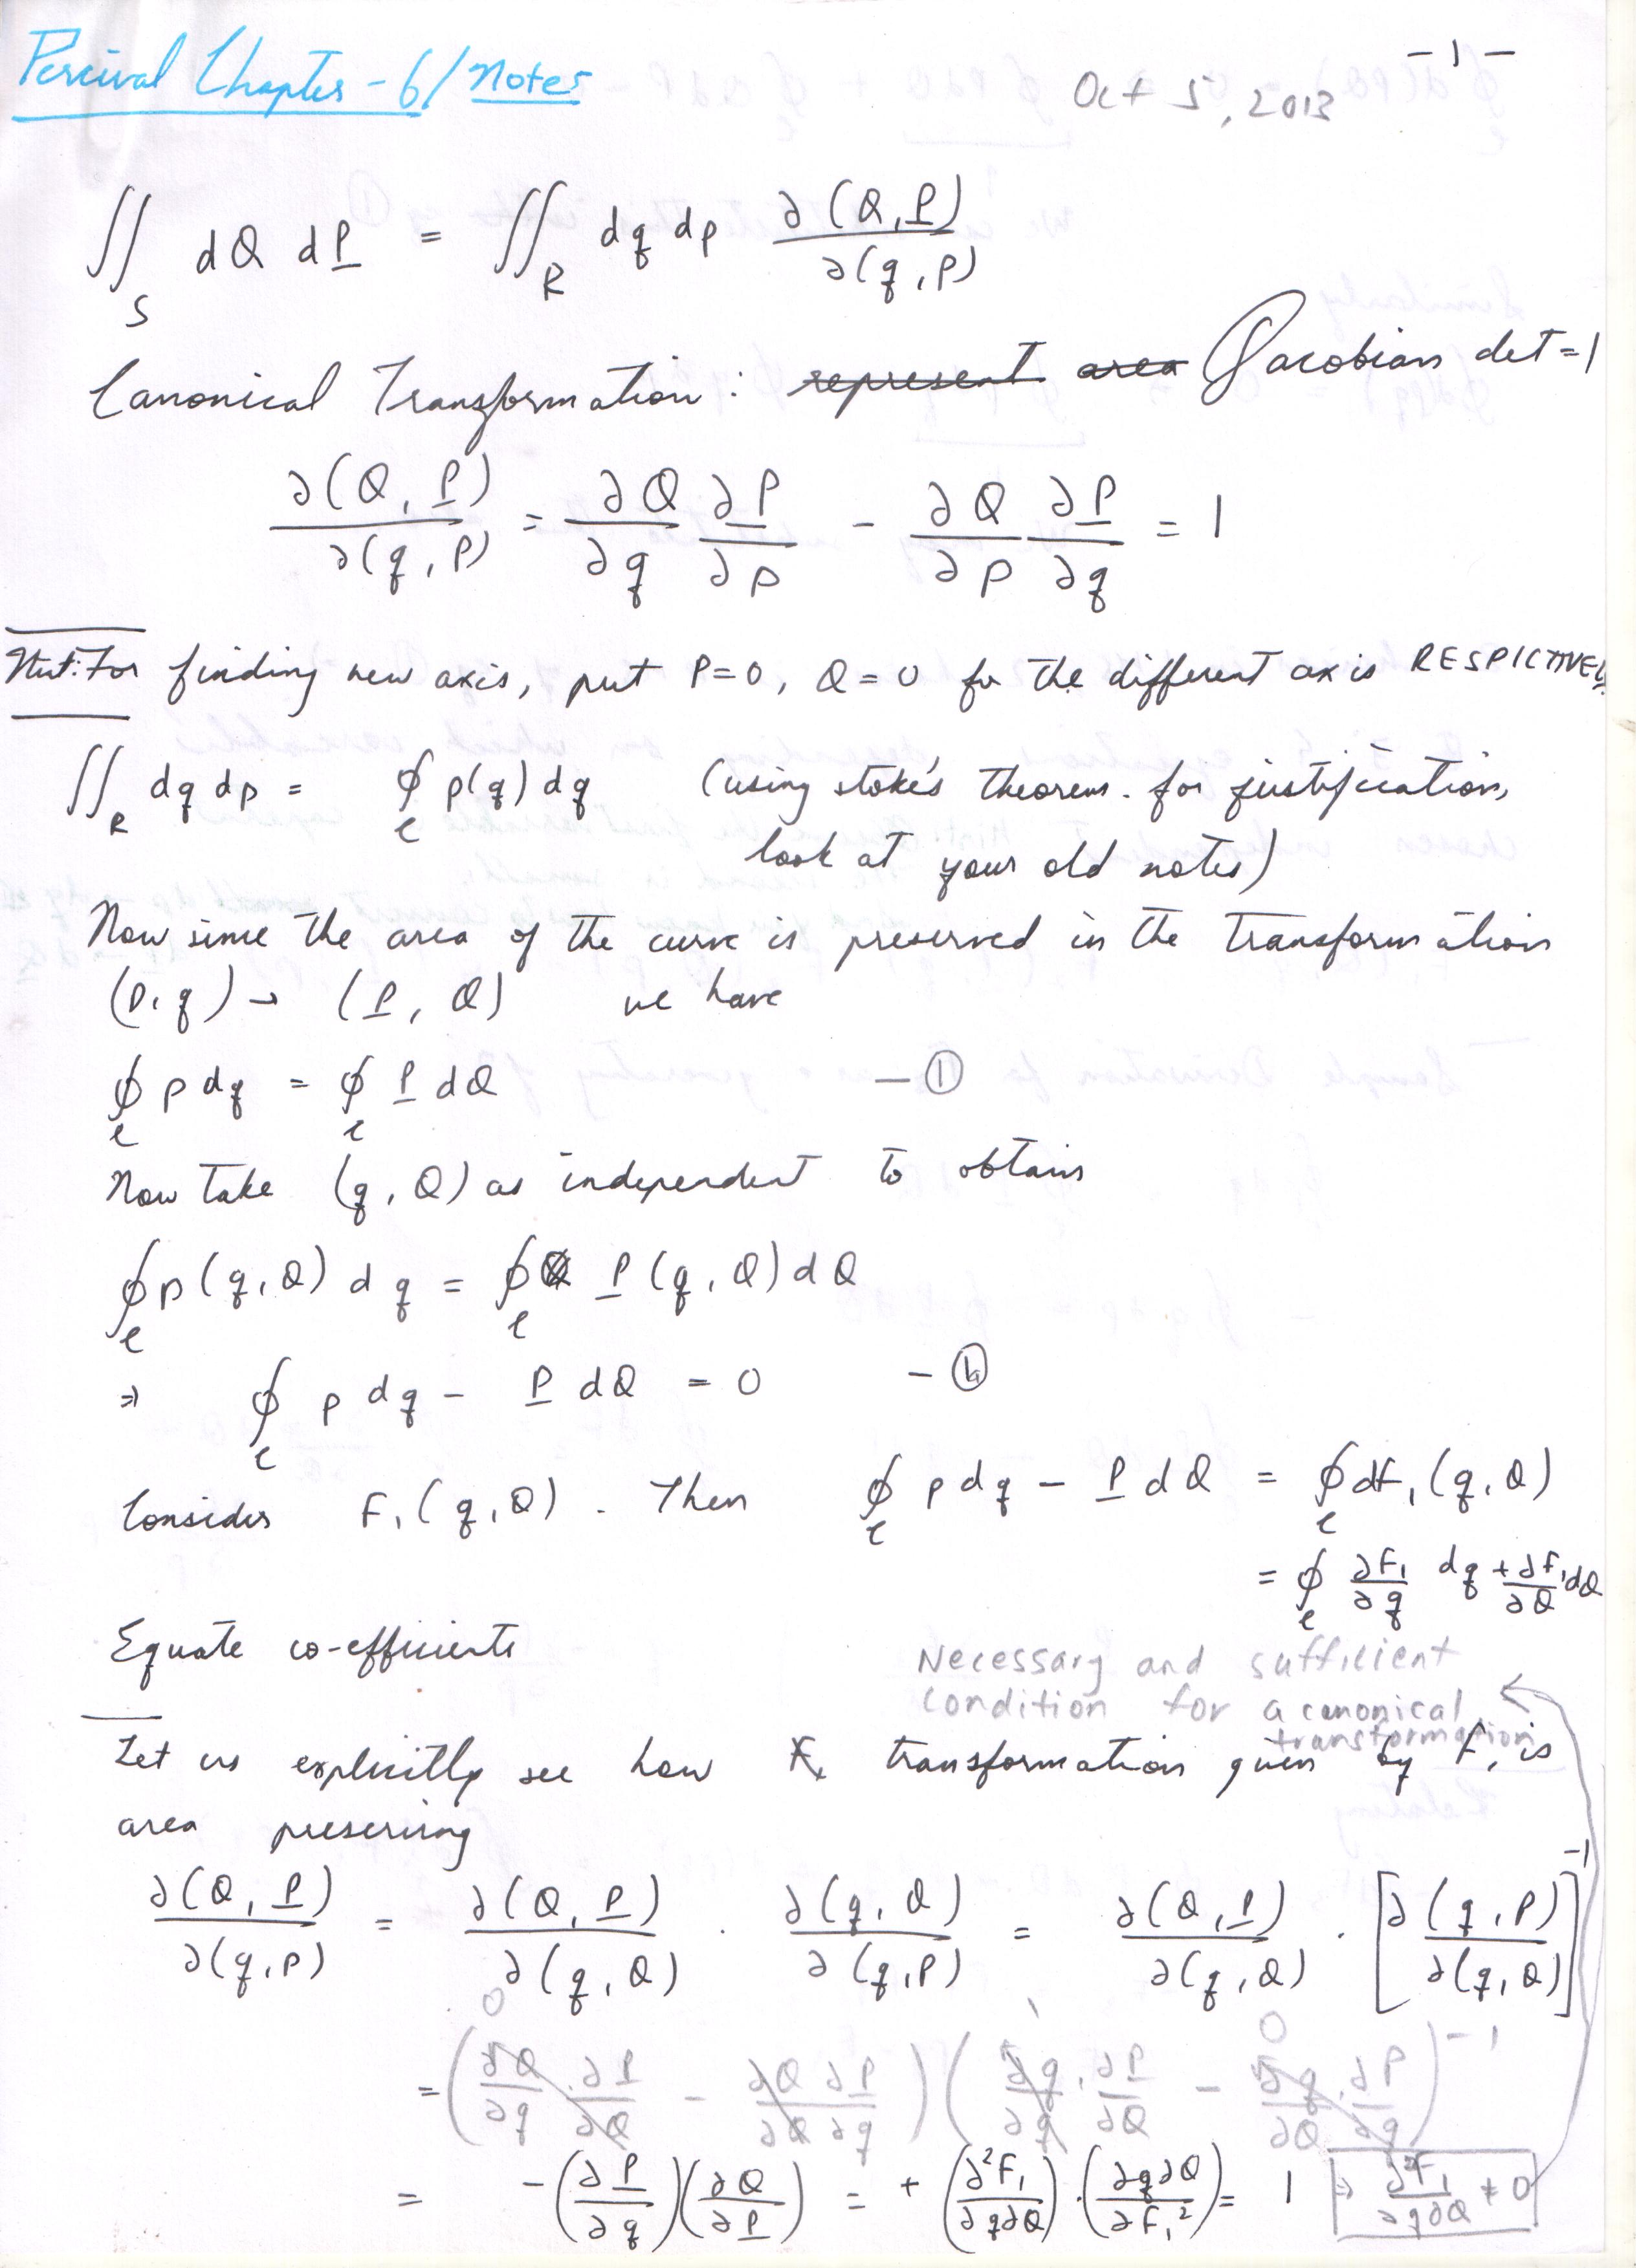 Percival Chapter - 6/Notes
- 1 -
Oct 5, 2013
∬_S dQ dP = ∬_R dq dp ∂(Q, P)/∂(q, p)
Canonical Transformation: represent area Jacobian det = 1
∂(Q, P)/∂(q, p) = ∂Q/∂q ∂P/∂p - ∂Q/∂p ∂P/∂q = 1
For finding new axis, put P=0, Q=0 for the different axis RESPICTIVELY
∬_R dq dp = ∮_c p(q) dq (using stoke's theorem. for justification,
look at your old notes)
Now since the area of the curve is preserved in the transformation
(p, q) → (P, Q) we have
∮_c p dq = ∮_c P dQ — ①
Now take (q, Q) as independent to obtain
∮_c p(q, Q) dq = ∮_c P(q, Q) dQ
⇒ ∮_c p dq - P dQ = 0
Consider F₁(q, Q). Then ∮_c p dq - P dQ = ∮_c dF₁(q, Q)
= ∮_c ∂F₁/∂q dq + ∂F₁/∂Q dQ
Equate co-efficients
Necessary and sufficient
condition for a canonical
transformation
Let us explicitly see how transformation given by F₁ is
area preserving
∂(Q, P)/∂(q, p) = ∂(Q, P)/∂(q, Q) . ∂(q, Q)/∂(q, p) = ∂(Q, P)/∂(q, Q) . [∂(q, p)/∂(q, Q)]⁻¹
= (∂Q/∂q . ∂P/∂Q - ∂Q/∂Q ∂P/∂q) (∂q/∂q . ∂P/∂Q - ∂q/∂Q . ∂P/∂q)⁻¹
0 1 0
= -(∂P/∂q)(∂Q/∂P) = + (∂²F₁/∂q∂Q) . (∂q∂Q/∂F₁²) = 1 ⇒ ∂²F₁/∂q∂Q ≠ 0